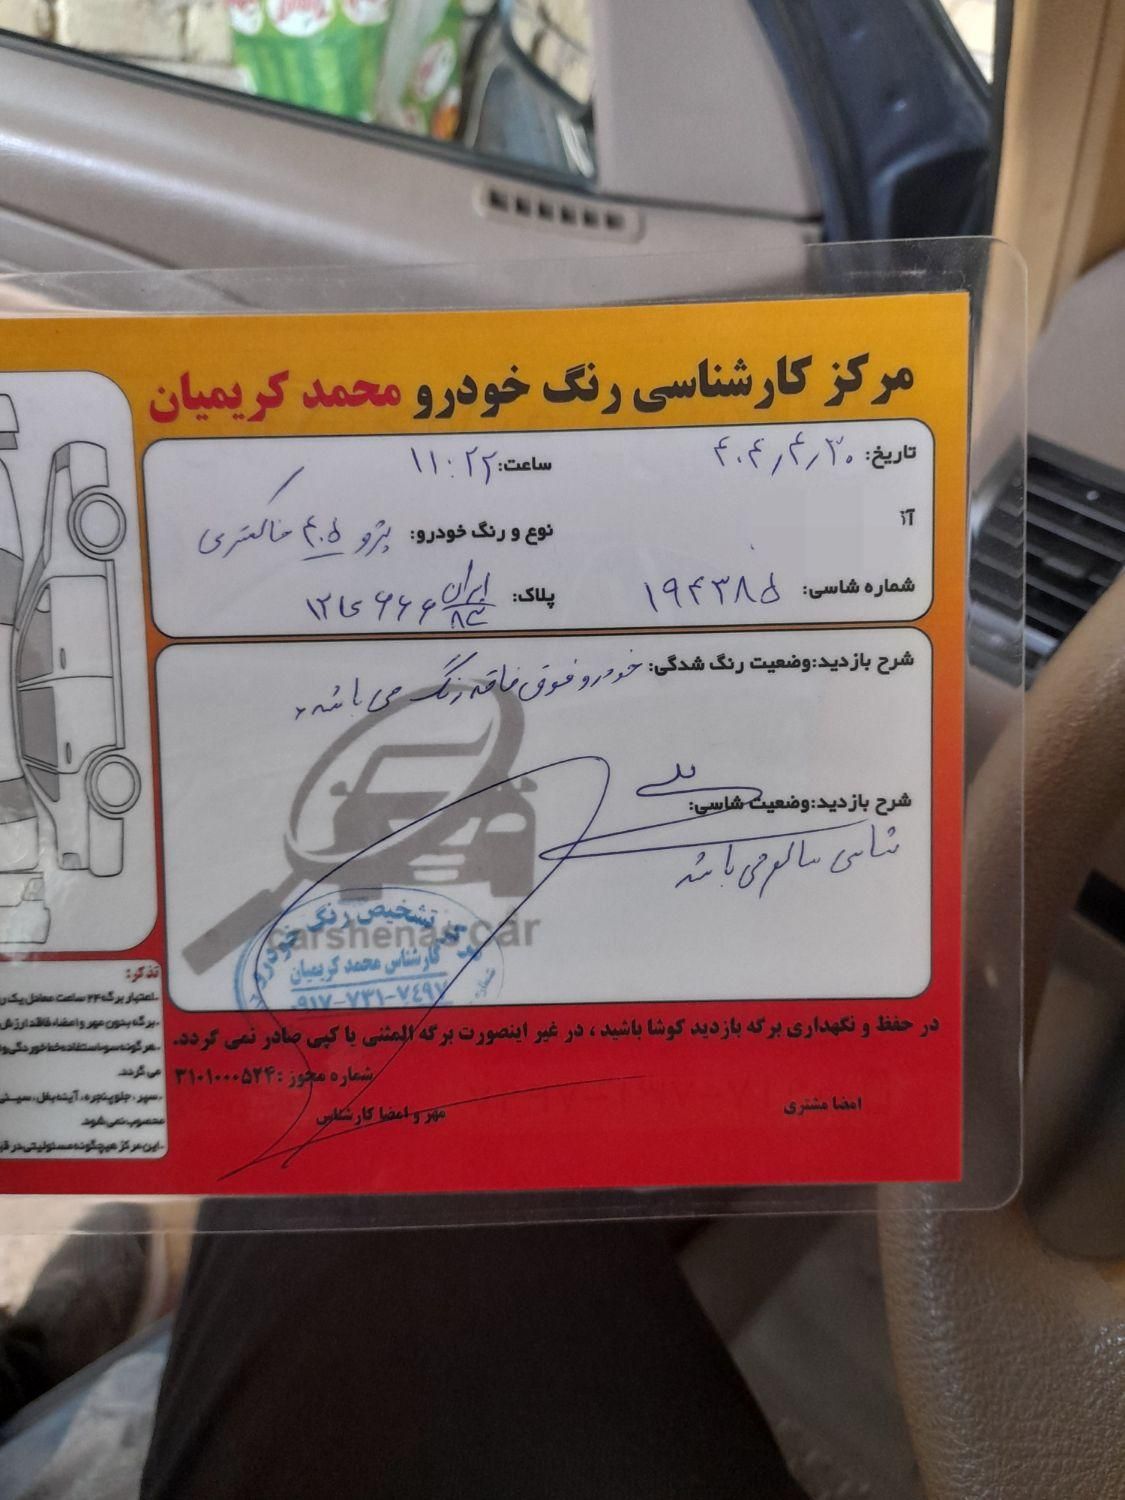 مرکز کارشناسی رنگ خودرو محمد کریمیان
تاریخ: ۴۰۴/۴/۳۰ ساعت: ۱۱:۲۲
آ
نوع و رنگ خودرو: پژو ۴۰۵ خاکستری
شماره شاسی: ۱۹۴۳۸۵ پلاک: ایران ۸۳ ۶۶۶ ۱۲
شرح بازدید:وضعیت رنگ شدگی: خودرو فوق فاقد رنگ می باشد
شرح بازدید:وضعیت شاسی:
شاسی سالم می باشد
carshenas car
تشخیص رنگ خودرو
کارشناس محمد کریمیان
۰۹۱۷-۷۳۱-۷٤۹۷
در حفظ و نگهداری برگه بازدید کوشا باشید ، در غیر اینصورت برگه المثنی یا کپی صادر نمی گردد.
شماره مجوز : ۳۱۰۱۰۰۰۵۲۴
امضا مشتری مهر و امضا کارشناس
تذکر:
-اعتبار برگه ۲۴ ساعت معادل یک
-برگه بدون مهر و امضاء فاقد ارزش
-هر گونه سواستفاده خط خوردگی و
می گردد.
-سپر ، جلو پنجره ، آینه بغل ، سینی
محسوب نمی شود.
-این مرکز هیچگونه مسئولیتی در